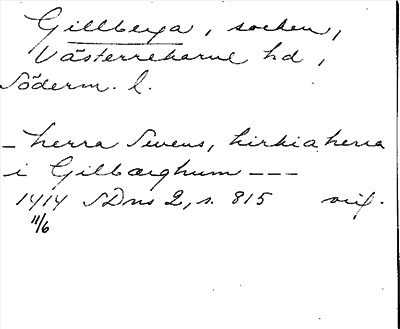 Gillberga, socken,
Västerrekarne hd,
Söderm. l.
– herra Swens, kirkia herra
i Gilbærghum – – –
1414 SDns 2, s. 815 orig.
11/6